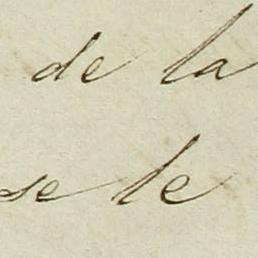 de la
se le